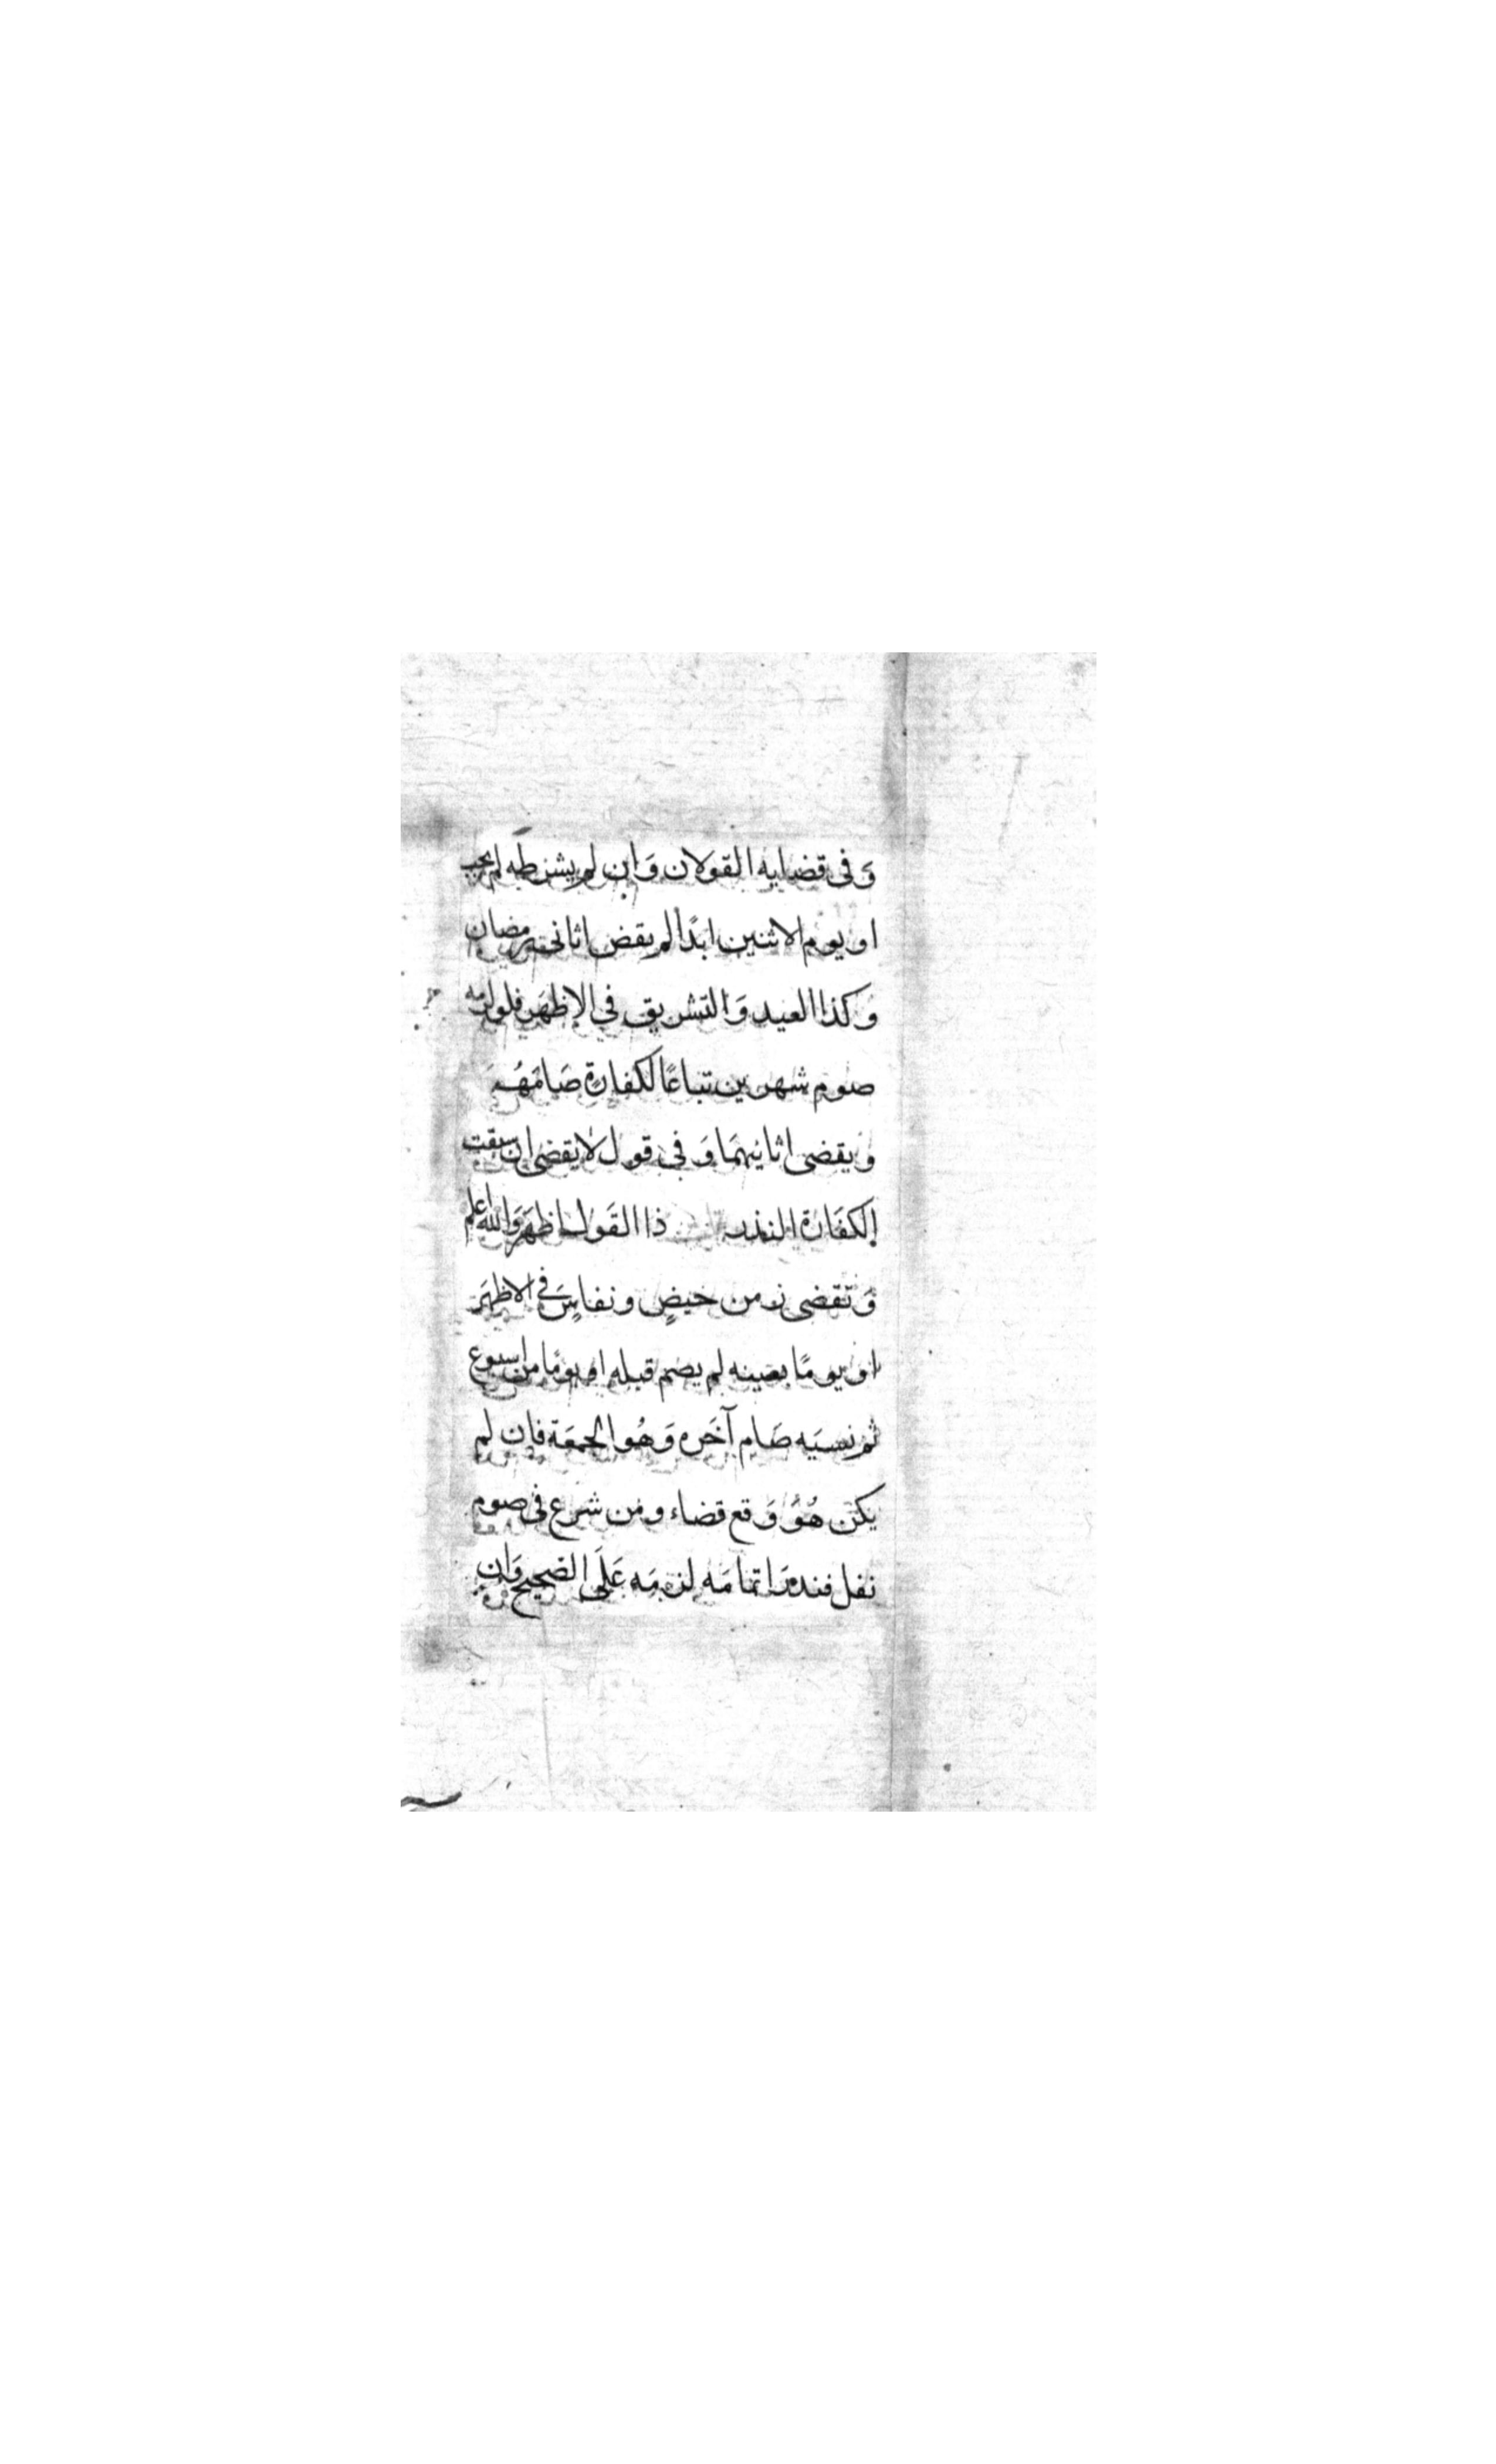 وَفى قضايه القولان وَان لم يشرطه لم يجب
او يوم الاثنين ابدًا لم يقض اثانى رمضان
وَكذا العيد وَالتشريق في الاظهَر فلو لزمه
صوم شهرين تباعًا لكفارة صَامَهُمَا
ويقضى اثانيهمَا وَفى قول لا يقضى ان سبقت
الكفَارة النذر ذا القَول اظهَر وَالله اعلم
وَتقضى زمن حيضٍ ونفاسٍ في الاظهَر
او يومًا بعينه لم يصم قبله او يومًا من اسبوع
ثم نسيَه صَام آخَره وَهُو الجمعَة فان لم
يكن هُوَ وَقع قضاء ومن شرع فى صوم
نفل فنذرَ اتمامَه لزمَه عَلَى الصحيح وَان